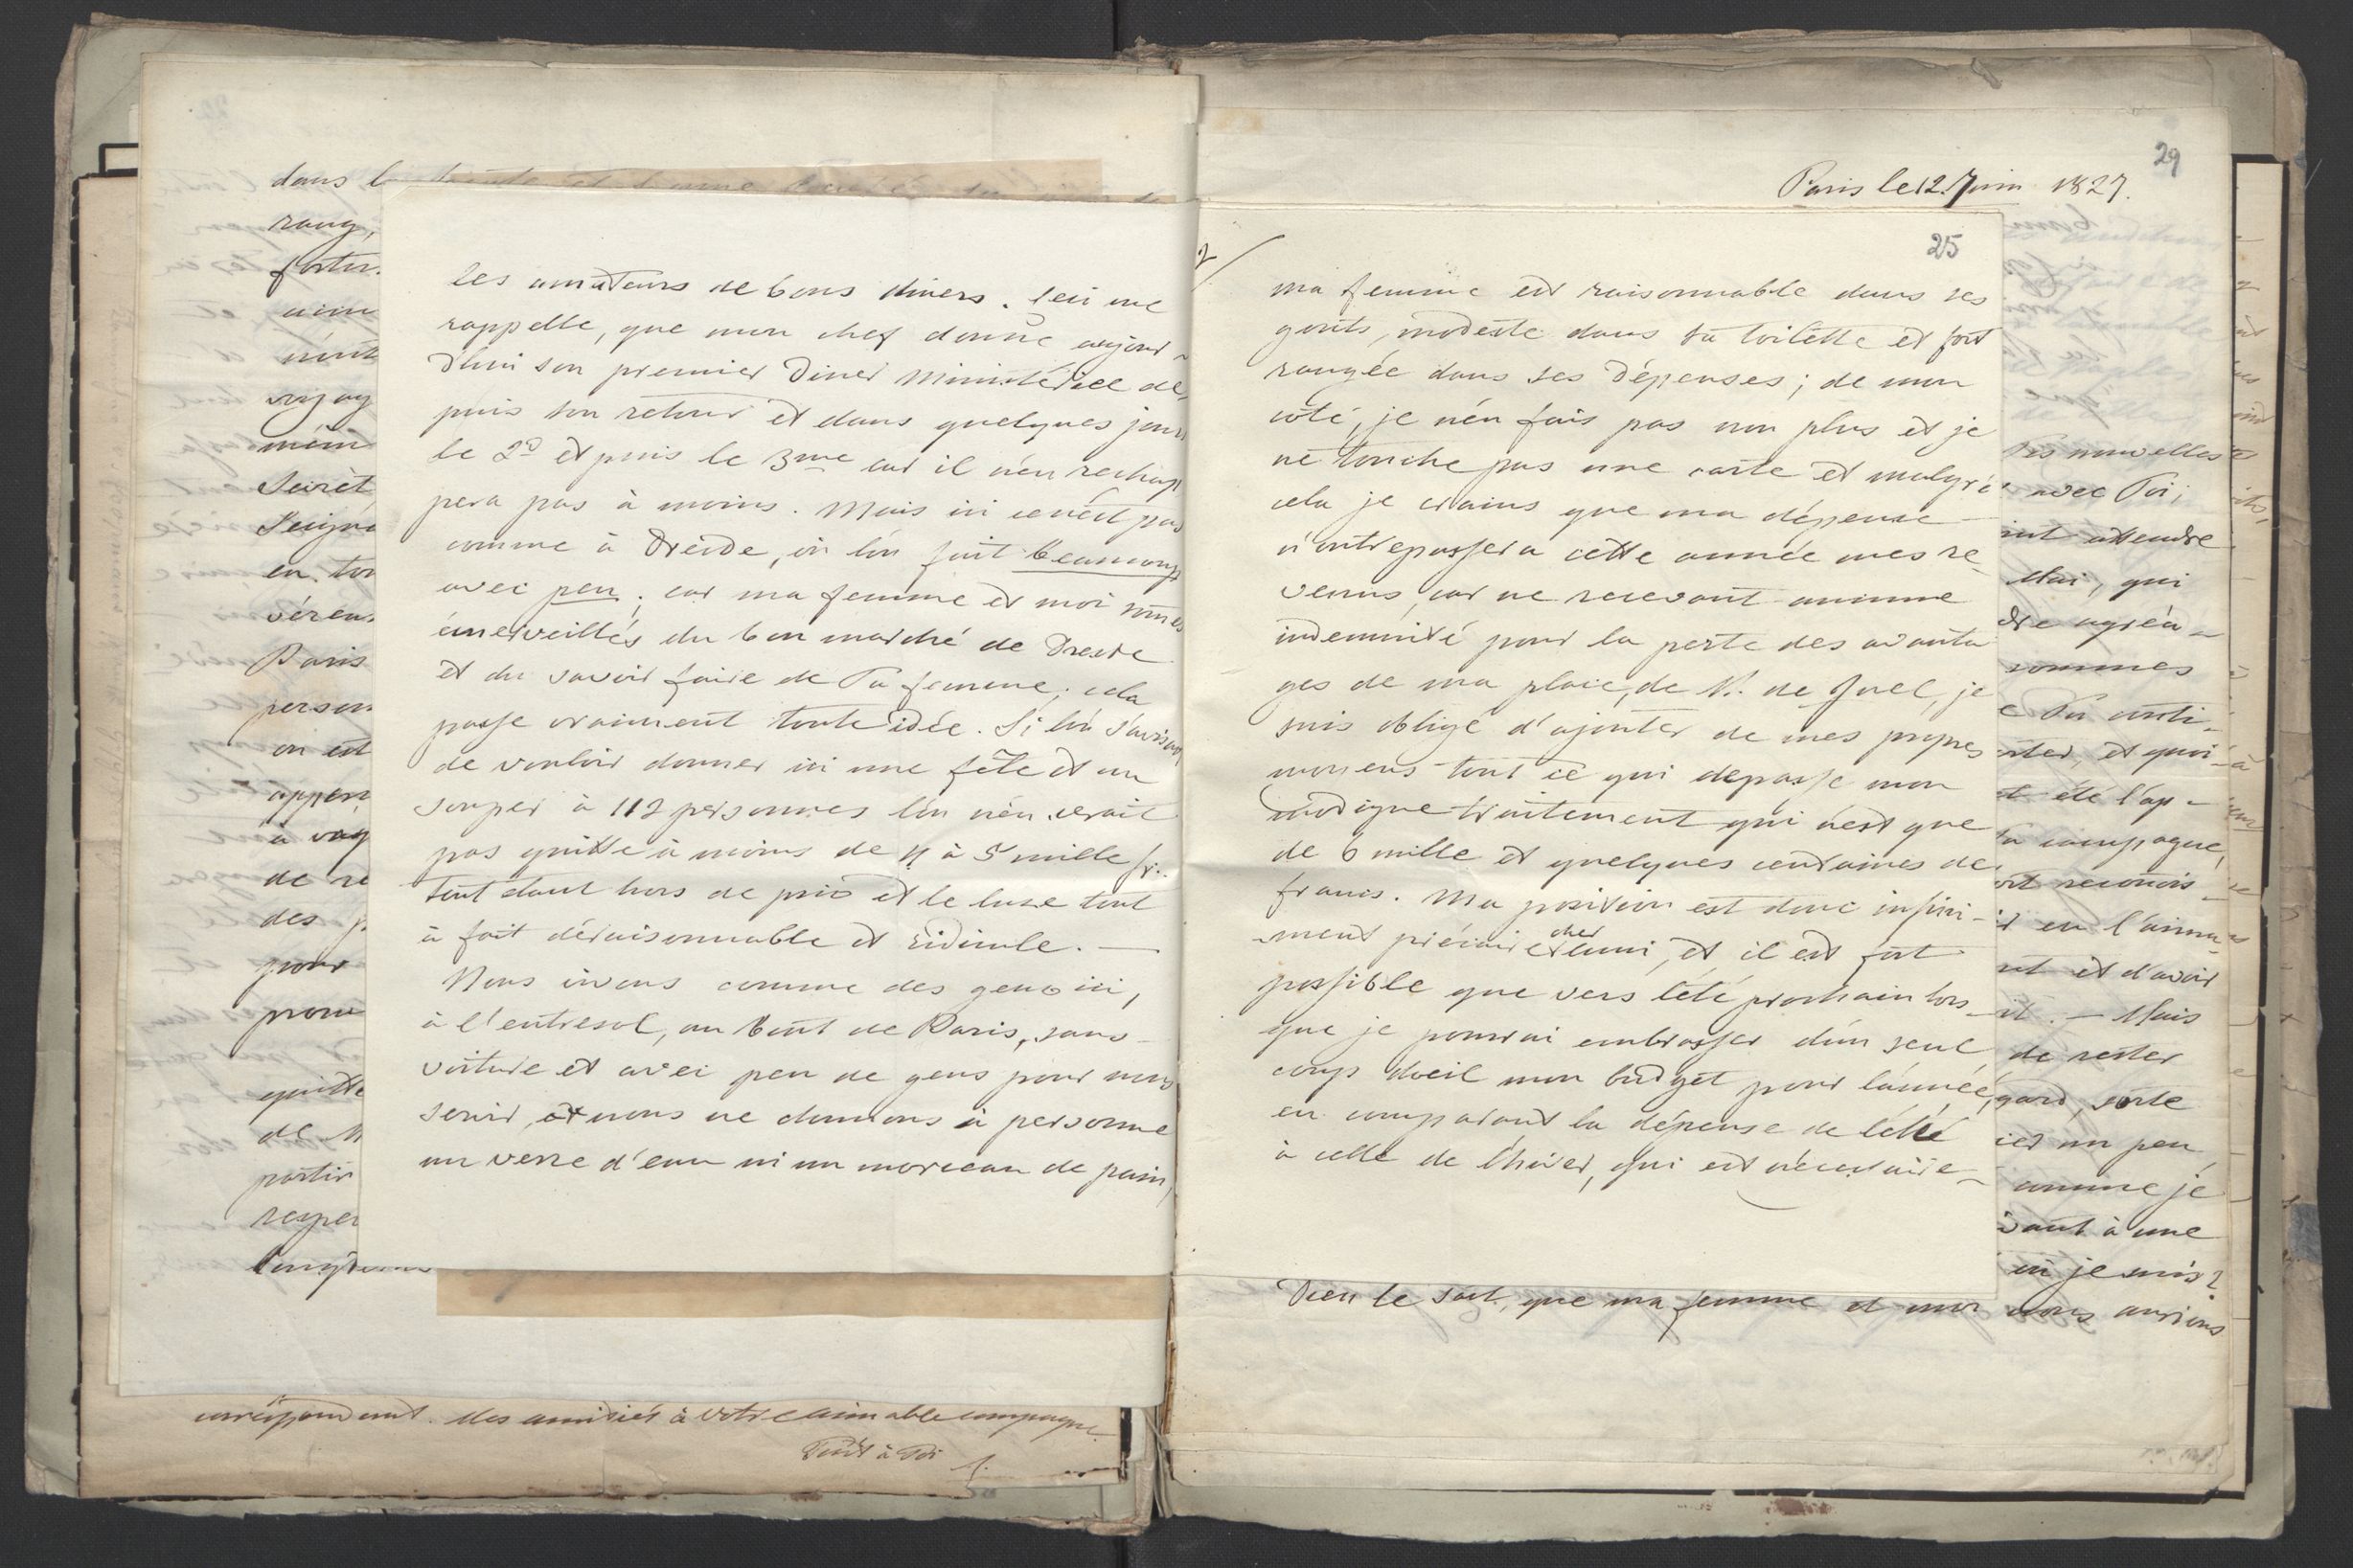 les amateurs de bons diners. Ceci me
rappelle, que mon chef donne aujour-
d'hui son premier diner ministériel de-
puis son retour et dans quelques jours
le 2d et puis le 3me car il n'en rechap
pera pas à moins. Mais ici ce n'est pas
comme à Dresde, où l'on fait beaucoup
avec peu; car ma femme et moi somes
émerveillés du bon marché de Dresde
et du savoir faire de Ta femme; cela
passe vraiment toute idée. Si l'on s'avisait
de vouloir donner ici une fête et un
souper à 112 personnes l'on n'en serait
pas quitte à moins de 4 à 5 mille fr.
tout étant hors de prix et le luxe tout
à fait déraisonnable et ridicule. —
Nous vivons comme des gens ici,
à l'entresol, au bout de Paris, sans
voiture et avec peu de gens pour nous
servir, et nous ne donnons à personne
un verre d'eau ni un morceau de pain,
dans l
rang,
méme
Secrét
en tou
Paris
person
on est
de re
des
pour
quitte
partir
longtems
correspondant. Mes amitiés à votre aimable compagne.
Tout à Toi
29
Paris le 12. Juin 1827.
25
2/
ma femme est raisonnable dans ses
gouts, modeste dans sa toilette et fort
rangée dans ses dépenses; de mon
coté, je n'en fais pas non plus et je
ne touche pas une carte et malgré
cela je crains que ma dépense
n'outrepassera cette année mes re-
venus, car ne recevant aucune
indemnité pour la perte des avanta
ges de ma place, de M. de Juel, je
suis obligé d'ajouter de mes propres
moyens tout ce qui depasse mon
modique traitement qui n'est que
de 6 mille et quelques centaines de
francs. Ma position est donc infini-
ment précaire cher ami, et il est fort
possible que vers l'été prochain lors-
que je pourrai embrasser d'un seul
coup d'oeil mon budget pour l'année,
en comparant la dépense de l'été
à celle de l'hiver, qui est nécessaire-
Tes nouvelles
avec Toi;
attendre
Mai, qui
agréa-
sommes
et quoi-
été l'ap-
compagne,
reconnais-
en l'aima-
et d'avoir
— Mais
de rester
un peu
comme je
à une
où je suis?
Dieu le sait, que ma femme et moi nous aurions